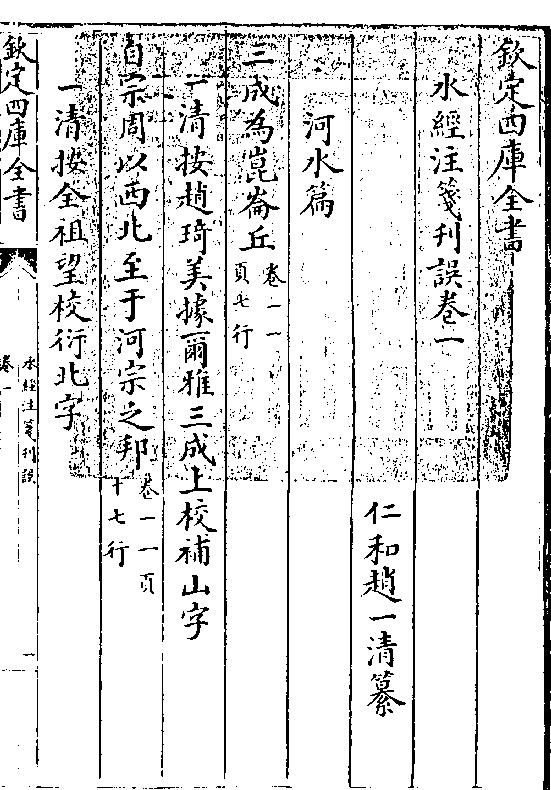 欽定四庫全書
水經注箋刊誤卷一
仁和趙一清纂
河水篇
三成為崑崙丘卷一一頁七行
一清按趙琦美據爾雅三成上校補山字
自宗周以西北至于河宗之邦卷一一頁十七行
一清按全祖望校衍北字
欽定四庫全書
水經注箋刊誤
卷一
一